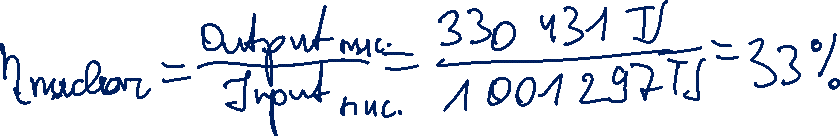 η nuclear = Output nuc. / Input nuc. = 330 431 TJ / 1 001 297 TJ = 33%